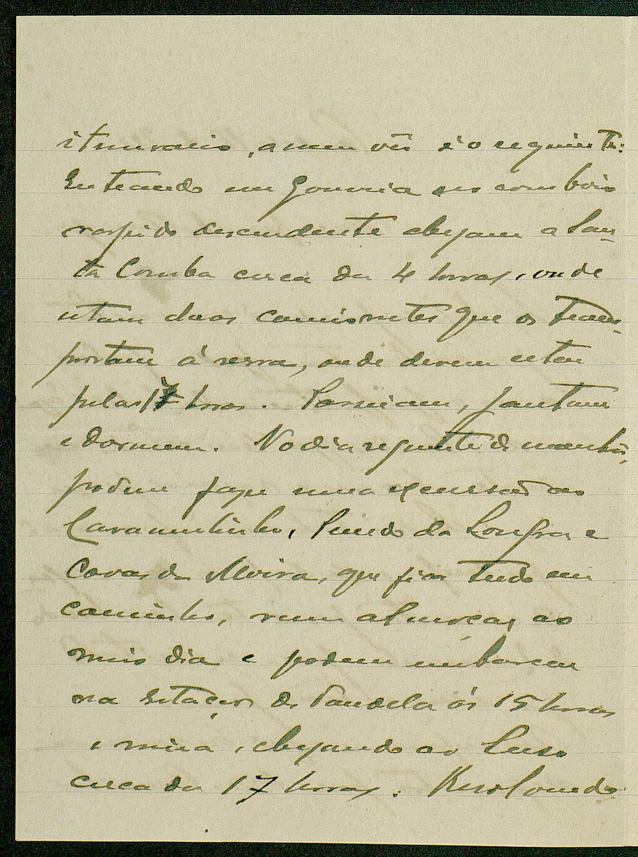 itinerario, a meu vêr é o seguinte:
Entrando em Gouveia no comboio
rapido descendente chegam a San-
ta Comba cerca das 4 horas, onde
estam duas camionetes que os trans-
portam á serra, onde devem estar
pelas 17 horas. Passeiam, jantam
e dormem. No dia seguinte de manhã,
podem fazer uma excursão ao
Caramulinho, Penedo da
Cova da Moira, que fica tudo em
caminho, vem almoçar ao
meio dia e podem embarcar
na estação de Tondela ás 15 horas
e meia, chegando ao Luso
cerca das 17 horas.